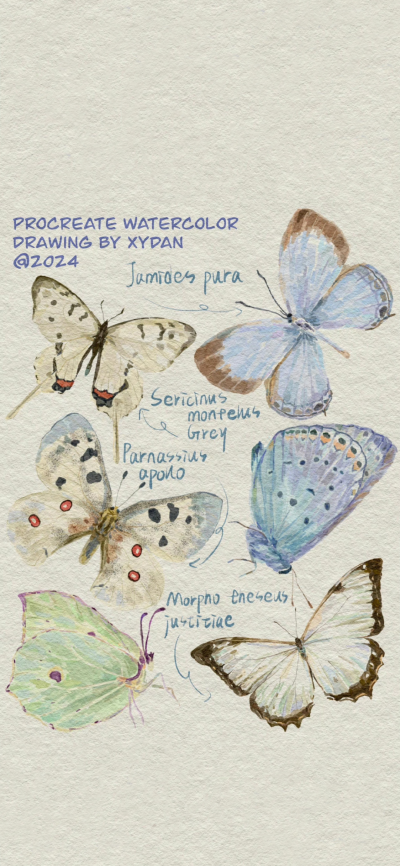 PROCREATE WATERCOLOR
DRAWING BY XYDAN
@2024
Jamides pura
Sericinus
monteeus
Grey
Parnassius
apollo
Morpho theseus
justitiae